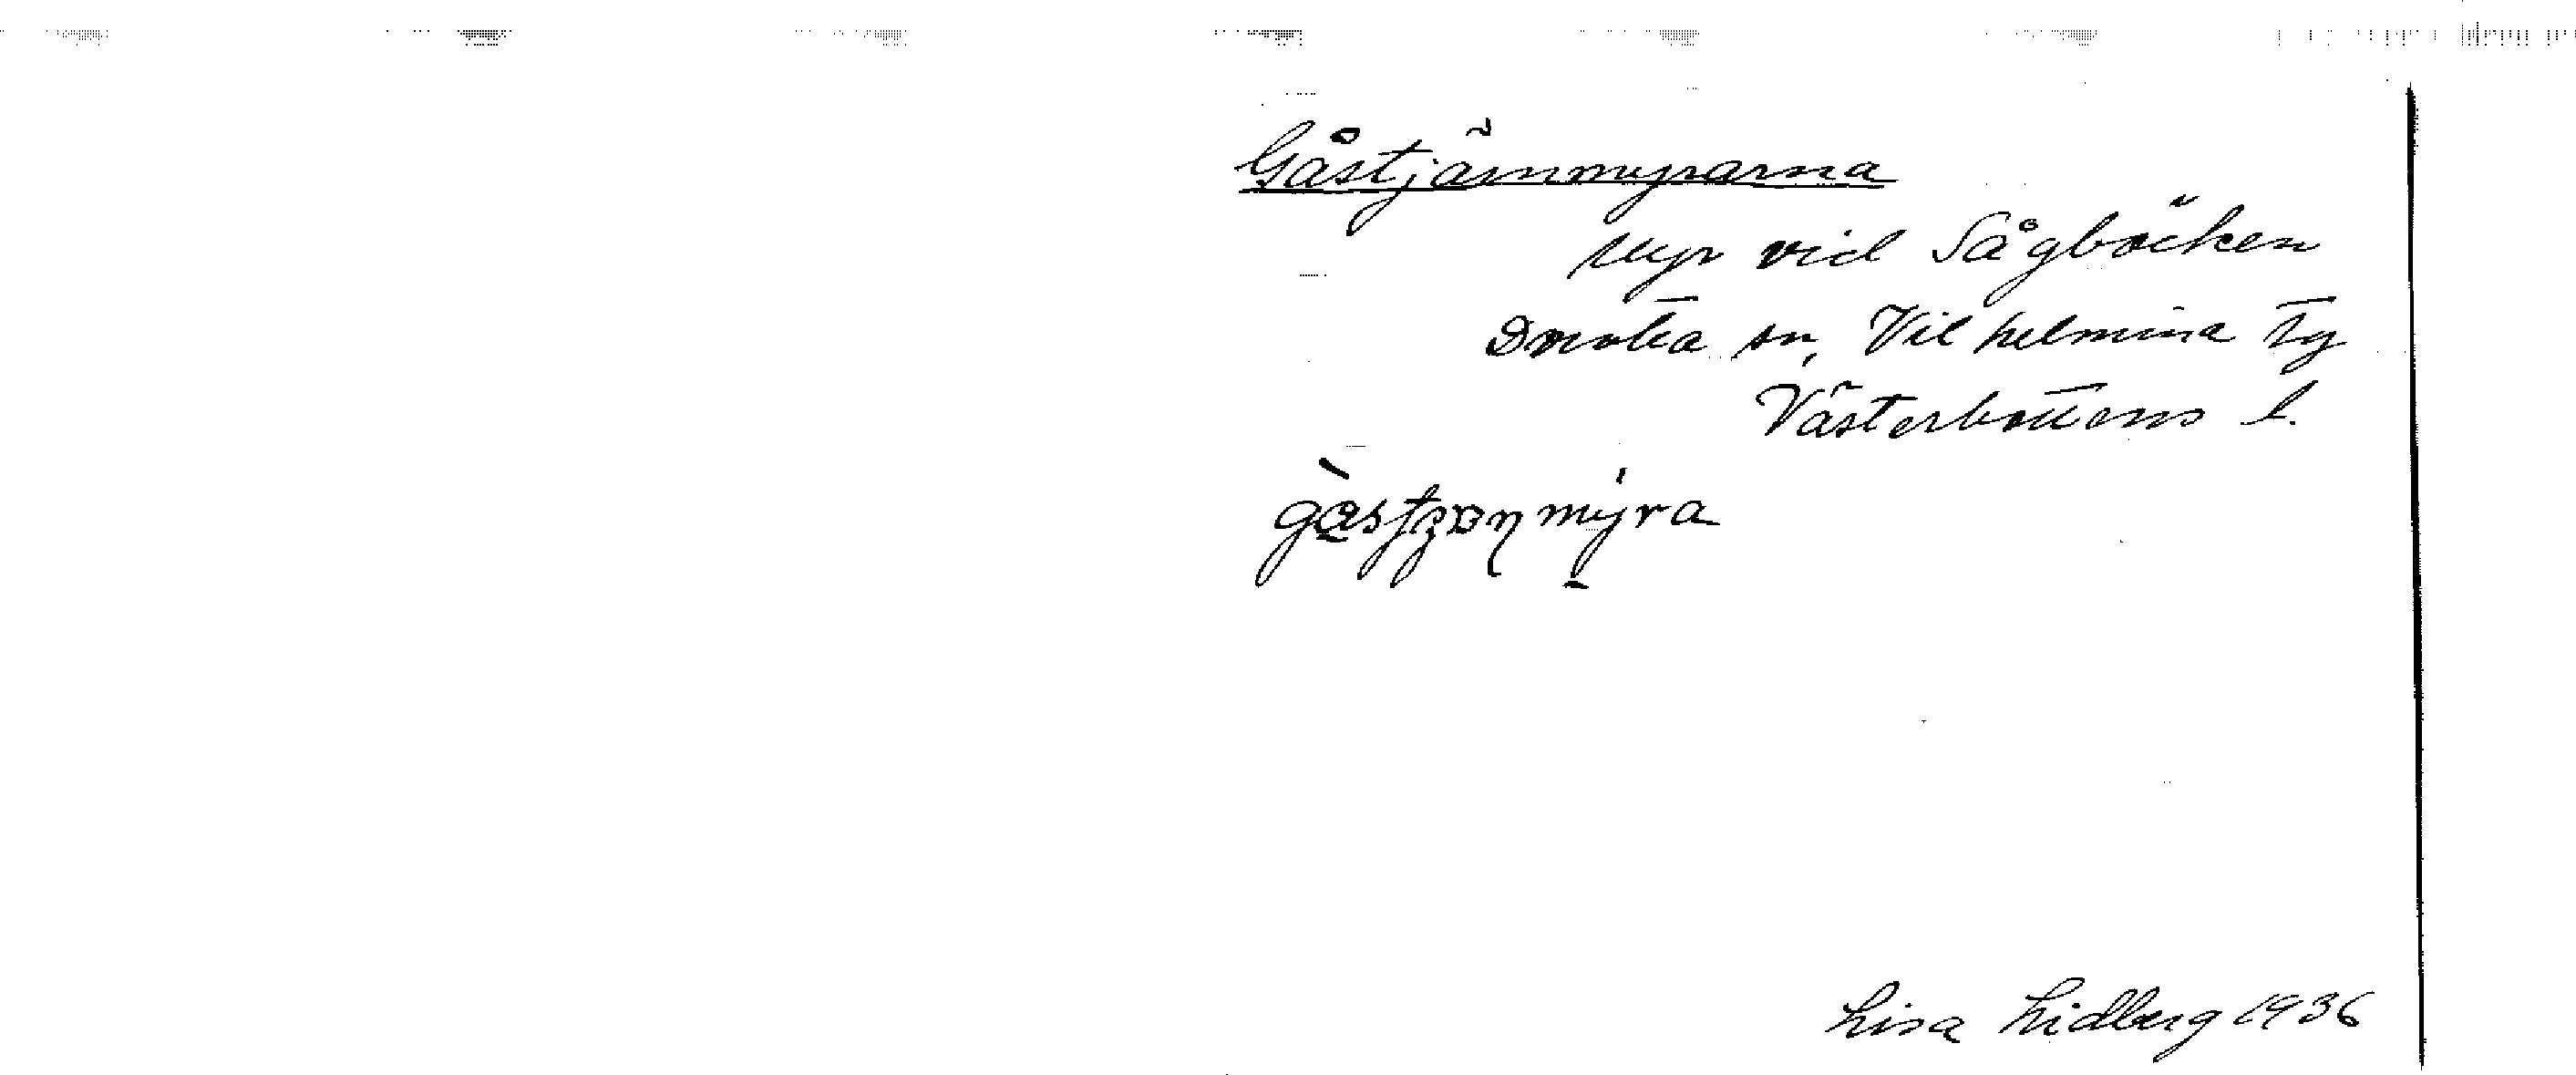 Gåstjärnmyrarna
Myr vid Sågbäcken
Dorotea sn, Vilhelmina tg
Västerbottens l.
Lisa Lidberg 1936